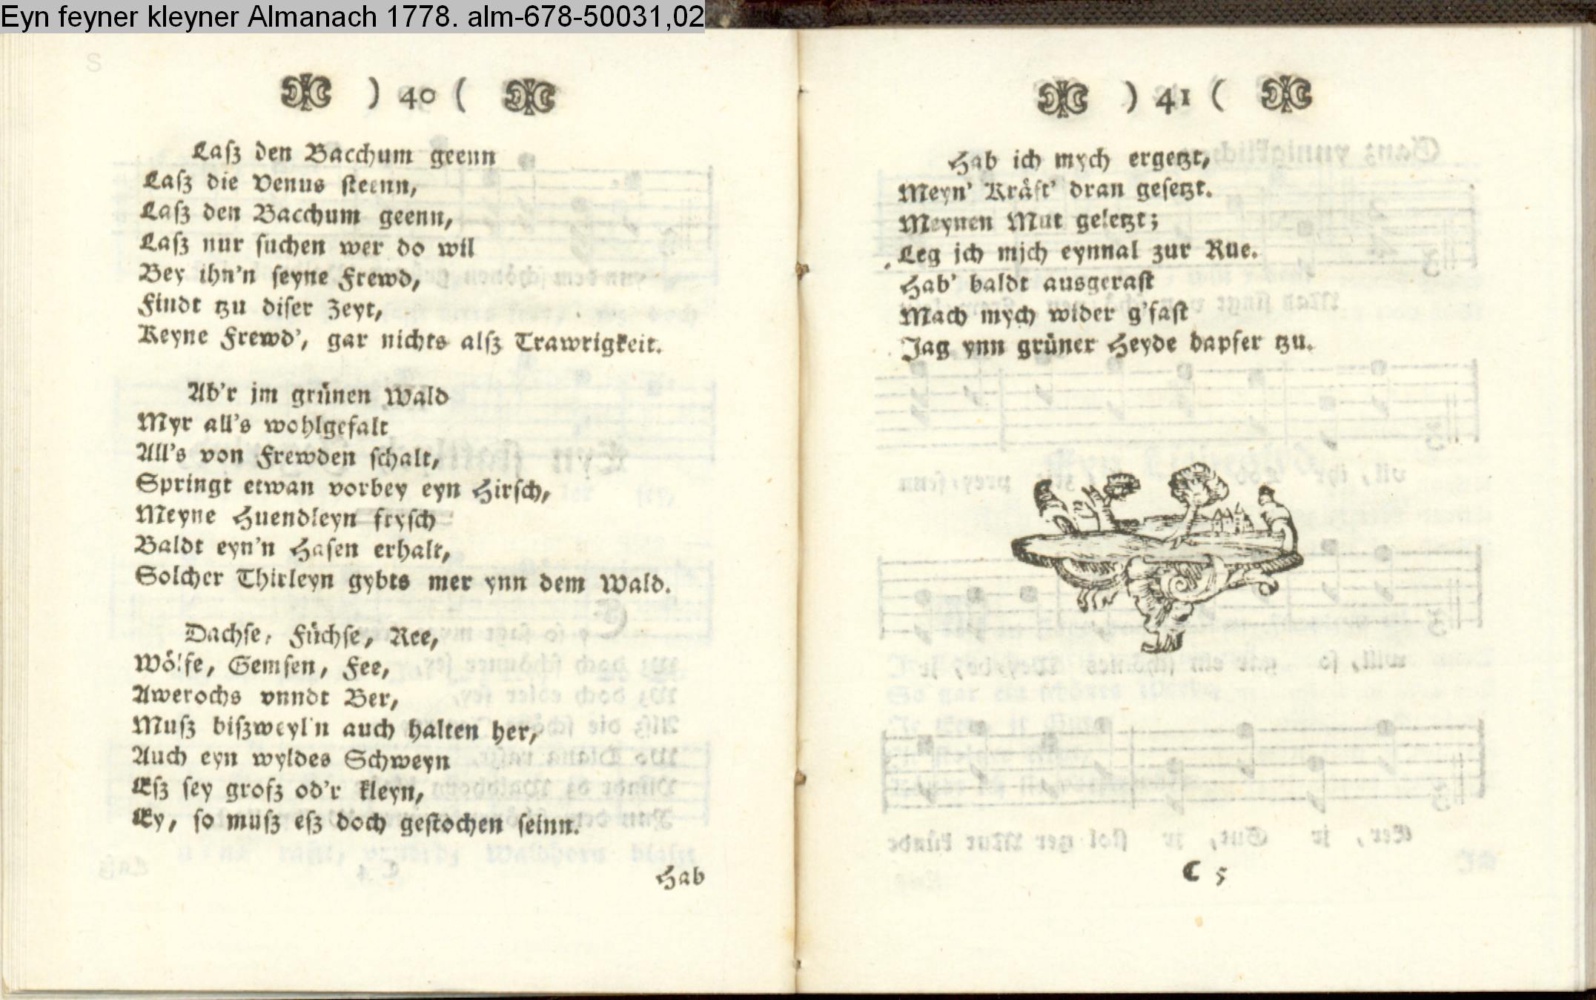 Eyn feyner kleyner Almanach 1778. alm-678-50031,02
) 40 (
Laſz den Bacchum geenn
Laſz die Venus ſteenn,
Laſz den Bacchum geenn,
Laſz nur ſuchen wer do wil
Bey ihn'n ſeyne Frewd,
Findt tzu diſer Zeyt,
Keyne Frewd', gar nichts alſz Trawrigkeit.
Ab'r jm grünen Wald
Myr all's wohlgefalt
All's von Frewden ſchalt,
Springt etwan vorbey eyn Hirſch,
Meyne Huendleyn fryſch
Baldt eyn'n Haſen erhalt,
Solcher Thirleyn gybts mer ynn dem Wald.
Dachſe, Füchſe, Ree,
Wölfe, Gemſen, Fee,
Awerochs vnndt Ber,
Muſz biſzweyl'n auch halten her,
Auch eyn wyldes Schweyn
Eſz ſey groſz od'r kleyn,
Ey, ſo muſz eſz doch geſtochen ſeinn.
Hab
) 41 (
Hab ich mych ergetzt,
Meyn' Kräft' dran geſetzt.
Meynen Mut geletzt;
Leg jch mjch eynnal zur Rue.
Hab' baldt ausgeraſt
Mach mych wider g'faſt
Jag ynn grüner Heyde dapfer tzu.
C 5